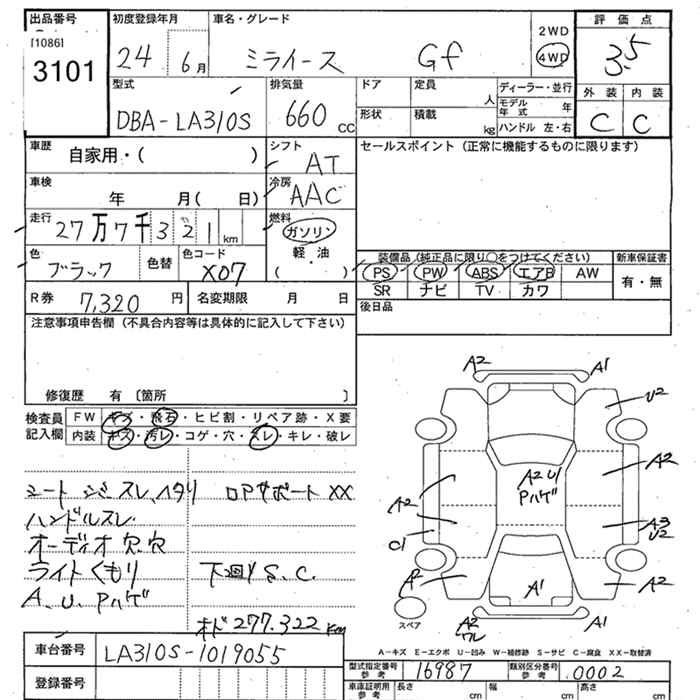 出品番号
[1086]
3101
初度登録年月
24 6月
車名・グレード
ミライース Gf
2WD
4WD
評価点
3.5
外装 内装
C C
型式
DBA-LA310S
排気量
660 CC
ドア
定員
人
ディーラー・並行
モデル年式 年
形状
積載
kg
ハンドル 左・右
車歴
自家用・( )
シフト
AT
セールスポイント(正常に機能するものに限ります)
車検
年 月( 日)
冷房
AAC
走行
27万7千321km
燃料
ガソリン
軽・油
( )
色
ブラック
色替
色コード
X07
装備品(純正品に限り○をつけてください)
新車保証書
PS PW ABS エアB AW
有・無
SR ナビ TV カワ
R券 7,320円
名変期限 月 日
後日品
注意事項申告欄(不具合内容等は具体的に記入して下さい)
修復歴 有〔箇所 〕
検査員記入欄
FW キズ・飛石・ヒビ割・リペア跡・X要
内装 キズ・汚レ・コゲ・穴・スレ・キレ・破レ
シート シミ スレ、ヘタリ
ロアサポート XX
ハンドルスレ
オーディオ欠.穴
ライトくもり
下廻りS.C.
A、U、Pハゲ
オド 277.322 km
A2 A1
U2
A2
A2 U1
Pハゲ
A2
A3
U2
C1
A2
A2
A1
A2
A1
スペア
A−キズ E−エクボ U−凹み W−補修跡 S−サビ C−腐食 XX−取替済
車台番号
LA310S-1019055
登録番号
型式指定番号 参考 16987
類別区分番号 参考 0002
車庫証明用 参考
長さ cm
幅 cm
高さ cm